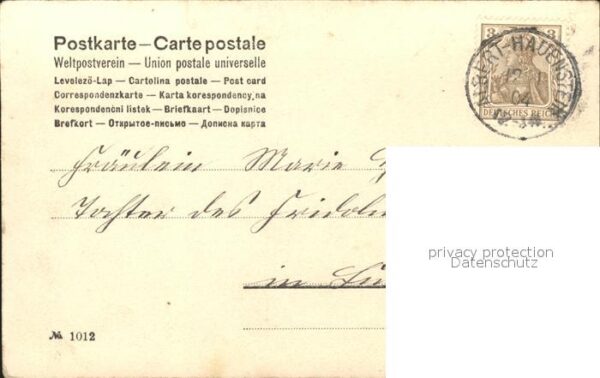 Postkarte — Carte postale
Weltpostverein — Union postale universelle
Levelező-Lap — Cartolina postale — Post card
Correspondenzkarte — Karta korespondencyjna
Korespondenční lístek — Briefkaart — Dopisnice
Brefkort — Открытое-письмо — Дописна карта
3 3
ALBERT-HAUENSTEIN
04
DEUTSCHES REICH
Fräulein Marie
Tochter des Fridolin
in
privacy protection
Datenschutz
№ 1012